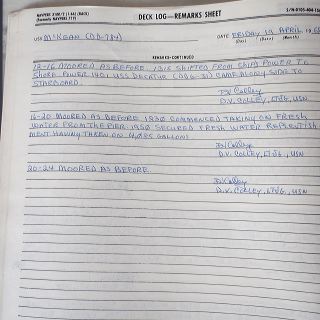 NAVPERS 3100/2 (1-66) (BACK)
(Formerly NAVPERS 719)
DECK LOG—REMARKS SHEET
USS McKEAN (DD-784)
DATE FRIDAY 19 APRIL
(Day) (Date) (Month)
REMARKS—CONTINUED
12-16 MOORED AS BEFORE. 1315 SHIFTED FROM SHIPS POWER TO
SHORE POWER. 1401 USS DECATUR (DDG-31) CAME ALONG SIDE TO
STARBOARD.
D.V. COLLEY, LTJG, USN
16-20 MOORED AS BEFORE 1930 COMMENCED TAKING ON FRESH
WATER FROM THE PIER. 1950 SECURED FRESH WATER REPLENISH
MENT HAVING TAKEN ON GALLONS
D.V. COLLEY, LTJG, USN
20-24 MOORED AS BEFORE.
D.V. COLLEY, LTJG, USN